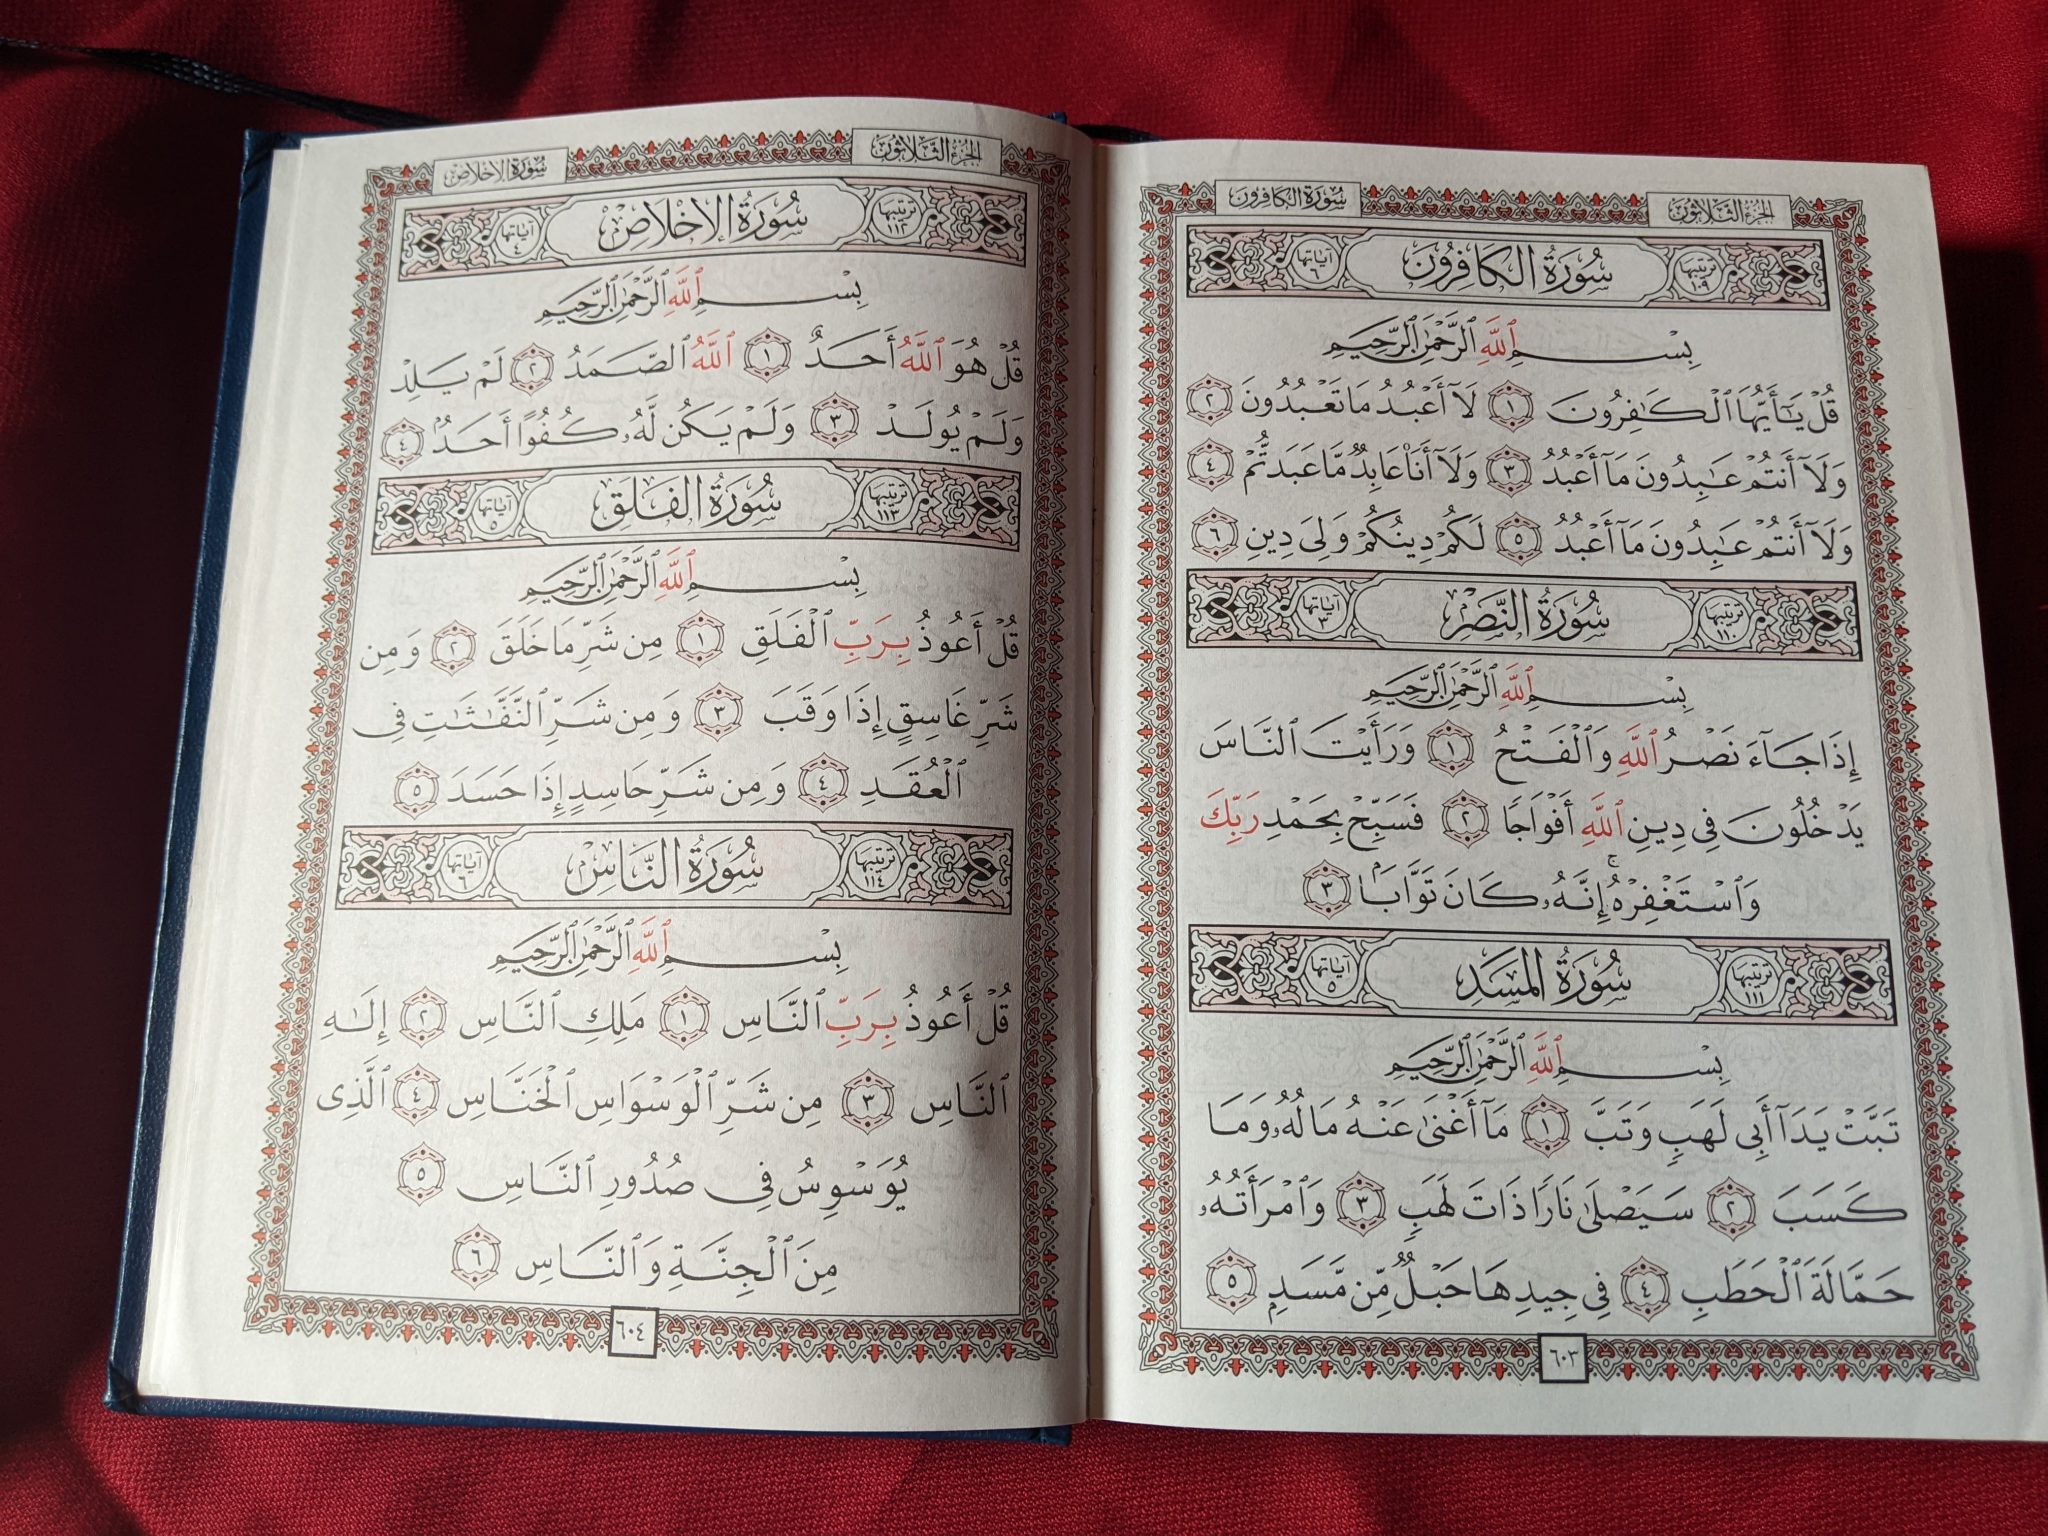 الجزء الثلاثون
سورة الكافرون
ترتيبها ١٠٩
سُورَةُ الكَافِرُون
آياتها ٦
بِسْمِ ٱللَّهِ ٱلرَّحْمَٰنِ ٱلرَّحِيمِ
قُلْ يَٰٓأَيُّهَا ٱلْكَٰفِرُونَ ١ لَآ أَعْبُدُ مَا تَعْبُدُونَ ٢
وَلَآ أَنتُمْ عَٰبِدُونَ مَآ أَعْبُدُ ٣ وَلَآ أَنَا۠ عَابِدٌ مَّا عَبَدتُّمْ ٤
وَلَآ أَنتُمْ عَٰبِدُونَ مَآ أَعْبُدُ ٥ لَكُمْ دِينُكُمْ وَلِىَ دِينِ ٦
ترتيبها ١١٠
سُورَةُ النَّصْرِ
آياتها ٣
بِسْمِ ٱللَّهِ ٱلرَّحْمَٰنِ ٱلرَّحِيمِ
إِذَا جَآءَ نَصْرُ ٱللَّهِ وَٱلْفَتْحُ ١ وَرَأَيْتَ ٱلنَّاسَ
يَدْخُلُونَ فِى دِينِ ٱللَّهِ أَفْوَاجًا ٢ فَسَبِّحْ بِحَمْدِ رَبِّكَ
وَٱسْتَغْفِرْهُ ۚ إِنَّهُۥ كَانَ تَوَّابَۢا ٣
ترتيبها ١١١
سُورَةُ المَسَدِ
آياتها ٥
بِسْمِ ٱللَّهِ ٱلرَّحْمَٰنِ ٱلرَّحِيمِ
تَبَّتْ يَدَآ أَبِى لَهَبٍ وَتَبَّ ١ مَآ أَغْنَىٰ عَنْهُ مَالُهُۥ وَمَا
كَسَبَ ٢ سَيَصْلَىٰ نَارًا ذَاتَ لَهَبٍ ٣ وَٱمْرَأَتُهُۥ
حَمَّالَةَ ٱلْحَطَبِ ٤ فِى جِيدِهَا حَبْلٌ مِّن مَّسَدٍۭ ٥
٦٠٣
الجزء الثلاثون
سورة الإخلاص
ترتيبها ١١٢
سُورَةُ الإِخْلَاصِ
آياتها ٤
بِسْمِ ٱللَّهِ ٱلرَّحْمَٰنِ ٱلرَّحِيمِ
قُلْ هُوَ ٱللَّهُ أَحَدٌ ١ ٱللَّهُ ٱلصَّمَدُ ٢ لَمْ يَلِدْ
وَلَمْ يُولَدْ ٣ وَلَمْ يَكُن لَّهُۥ كُفُوًا أَحَدٌۢ ٤
ترتيبها ١١٣
سُورَةُ الفَلَقِ
آياتها ٥
بِسْمِ ٱللَّهِ ٱلرَّحْمَٰنِ ٱلرَّحِيمِ
قُلْ أَعُوذُ بِرَبِّ ٱلْفَلَقِ ١ مِن شَرِّ مَا خَلَقَ ٢ وَمِن
شَرِّ غَاسِقٍ إِذَا وَقَبَ ٣ وَمِن شَرِّ ٱلنَّفَّٰثَٰتِ فِى
ٱلْعُقَدِ ٤ وَمِن شَرِّ حَاسِدٍ إِذَا حَسَدَ ٥
ترتيبها ١١٤
سُورَةُ النَّاسِ
آياتها ٦
بِسْمِ ٱللَّهِ ٱلرَّحْمَٰنِ ٱلرَّحِيمِ
قُلْ أَعُوذُ بِرَبِّ ٱلنَّاسِ ١ مَلِكِ ٱلنَّاسِ ٢ إِلَٰهِ
ٱلنَّاسِ ٣ مِن شَرِّ ٱلْوَسْوَاسِ ٱلْخَنَّاسِ ٤ ٱلَّذِى
يُوَسْوِسُ فِى صُدُورِ ٱلنَّاسِ ٥
مِنَ ٱلْجِنَّةِ وَٱلنَّاسِ ٦
٦٠٤